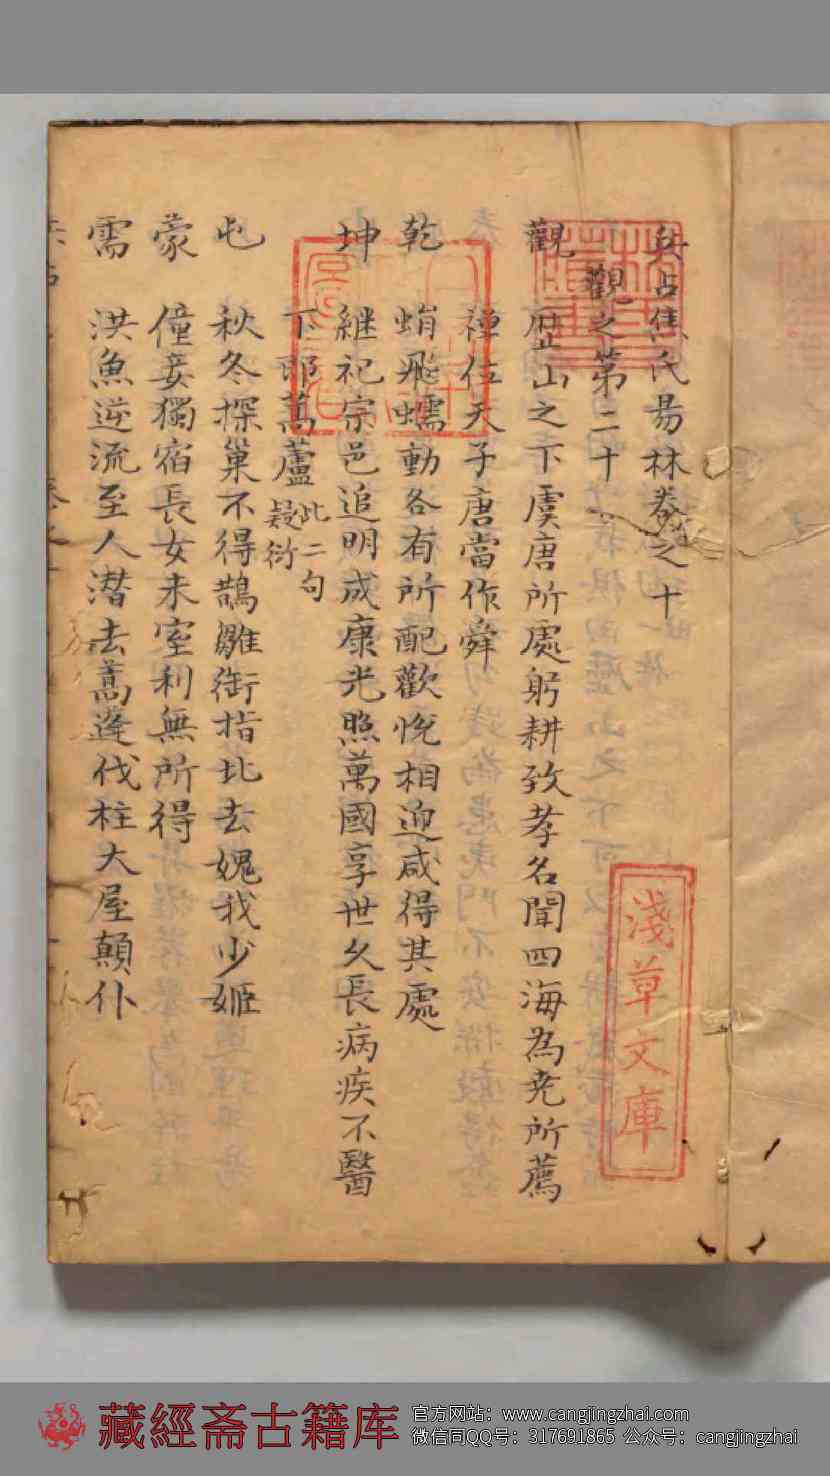 兵占焦氏易林卷之十
觀之第二十
觀 歴山之下虞唐所處躬耕致孝名聞四海為尭所薦
禋位天子唐當作舜
乾 蜎飛蠕動各有所配歡悅相迎咸得其處
坤 継祀宗邑追明成康光照萬國享世久長病疾不醫
下郎萬蘆此二句疑衍
屯 秋冬探巢不得鵲雛銜指北去媿我少姬
蒙 僮妾獨宿長女未室利無所得
需 洪魚逆流至人潜去蒿蓬伐柱大屋顛仆
淺草文庫
藏經斋古籍库
官方网站：www.cangjingzhai.com
微信同QQ号：317691865 公众号：cangjingzhai